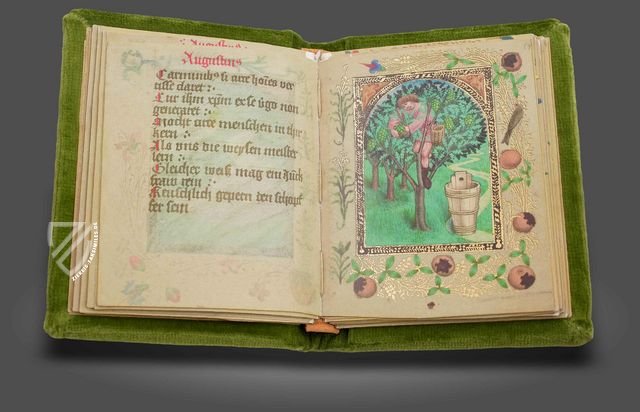 Augustinus
Augustinus
Carminib9 si arte hoīes ver
tisse daret :·
Cur ihm xp̄m ex se v̄go non
generaret :·
Mocht arte menschen in thir
kern :·
Als vns die weysen meister
lern :·
Gleicher weiß mag ein Junck
fraw rein :·
Kenschlich gepern den schopf
fer sein
ZIEREIS-FAKSIMILES.DE